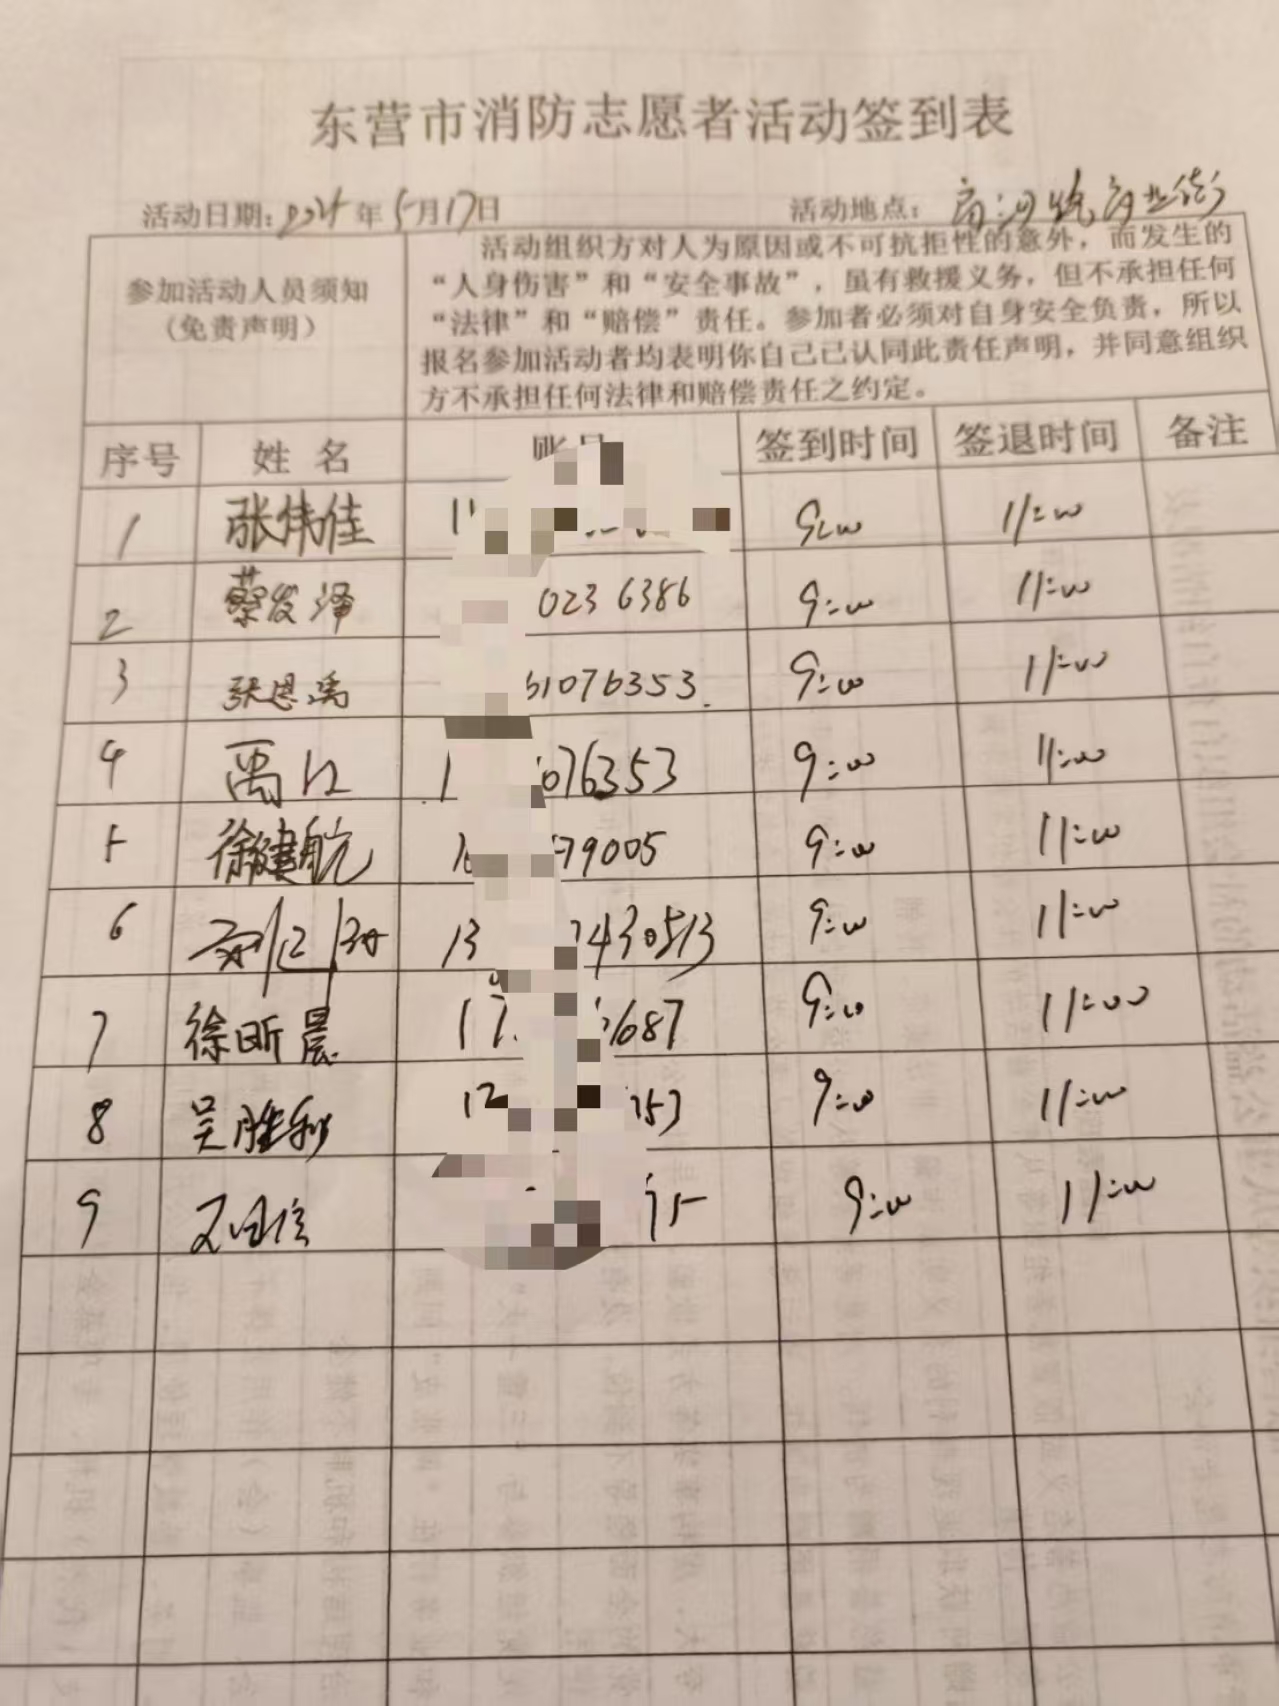 东营市消防志愿者活动签到表
活动日期：2024年5月17日 活动地点：商河路商业街
参加活动人员须知
（免责声明）
活动组织方对人为原因或不可抗拒性的意外，而发生的
“人身伤害”和“安全事故”，虽有救援义务，但不承担任何
“法律”和“赔偿”责任。参加者必须对自身安全负责，所以
报名参加活动者均表明你自己已认同此责任声明，并同意组织
方不承担任何法律和赔偿责任之约定。
序号 姓名 账号 签到时间 签退时间 备注
1 张伟佳 1 9:00 11:00
2 蔡发泽 023 6386 9:00 11:00
3 张恩禹 1076353 9:00 11:00
4 禹江 1 076353 9:00 11:00
5 徐建航 1 79005 9:00 11:00
6 13 2430513 9:00 11:00
7 徐昕晨 17 687 9:00 11:00
8 吴胜利 9:00 11:00
9 75 9:00 11:00